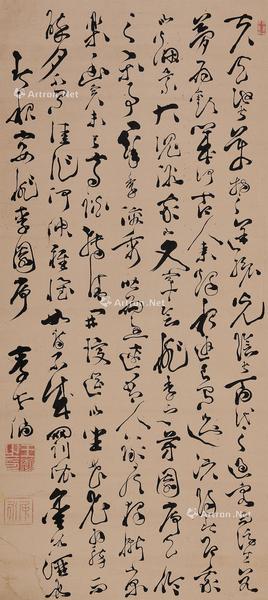 夫天地萬物之逆旅光陰百代之過客而浮生若
夢為歡幾何古人秉燭夜遊良有以
以煙景大塊假我以文章會桃李之芳園序天倫
之樂事群季俊秀皆為惠連吾人詠歌獨慚康
樂幽賞未已高談轉清開瓊筵以坐花飛羽觴而
醉月不有佳作何伸雅懷如詩不成罰依金谷酒數
春夜宴桃李園序
Artron.Net
Artron.Net
Artron.Net
Artron.Net